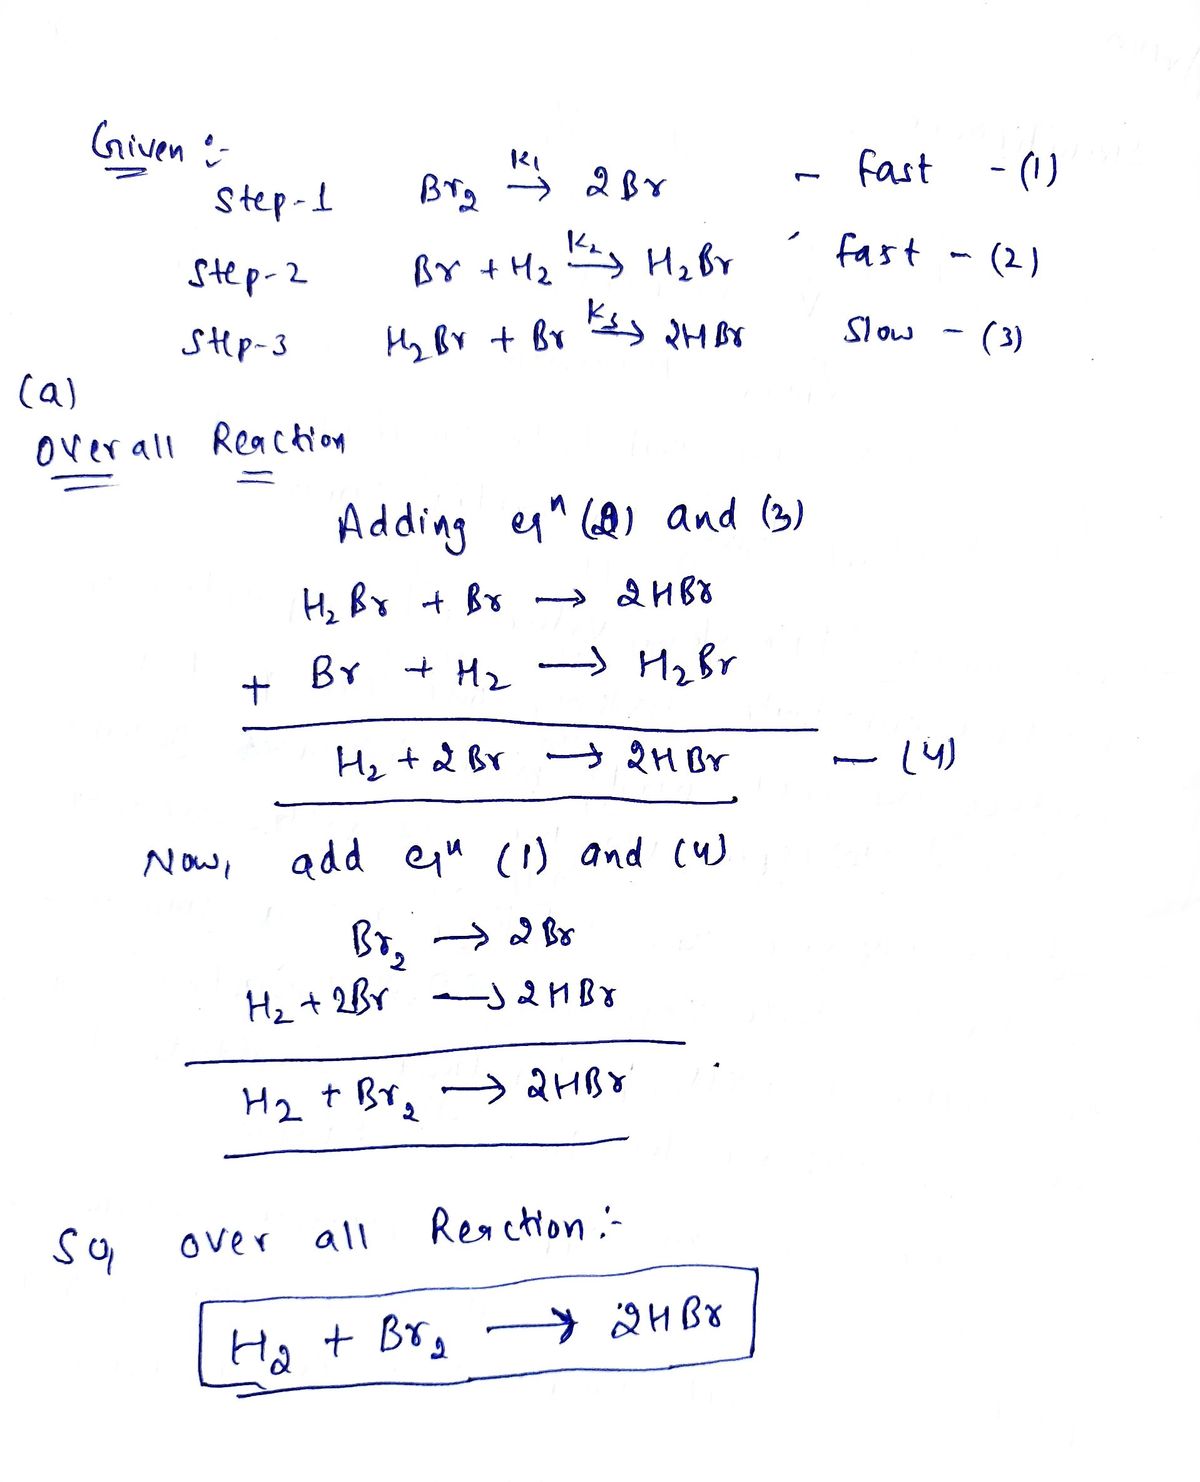 Given :-
Step-1 Br₂ →K₁ 2Br - fast - (1)
Step-2 Br + H₂ →K₂ H₂Br fast - (2)
Step-3 H₂Br + Br →K₃ 2HBr Slow - (3)
(a)
Over all Reaction
Adding eqⁿ (2) and (3)
H₂Br + Br → 2HBr
+ Br + H₂ → H₂Br
H₂ + 2Br → 2HBr - (4)
Now, add eqⁿ (1) and (4)
Br₂ → 2Br
H₂ + 2Br → 2HBr
H₂ + Br₂ → 2HBr
So, over all Reaction :-
H₂ + Br₂ → 2HBr